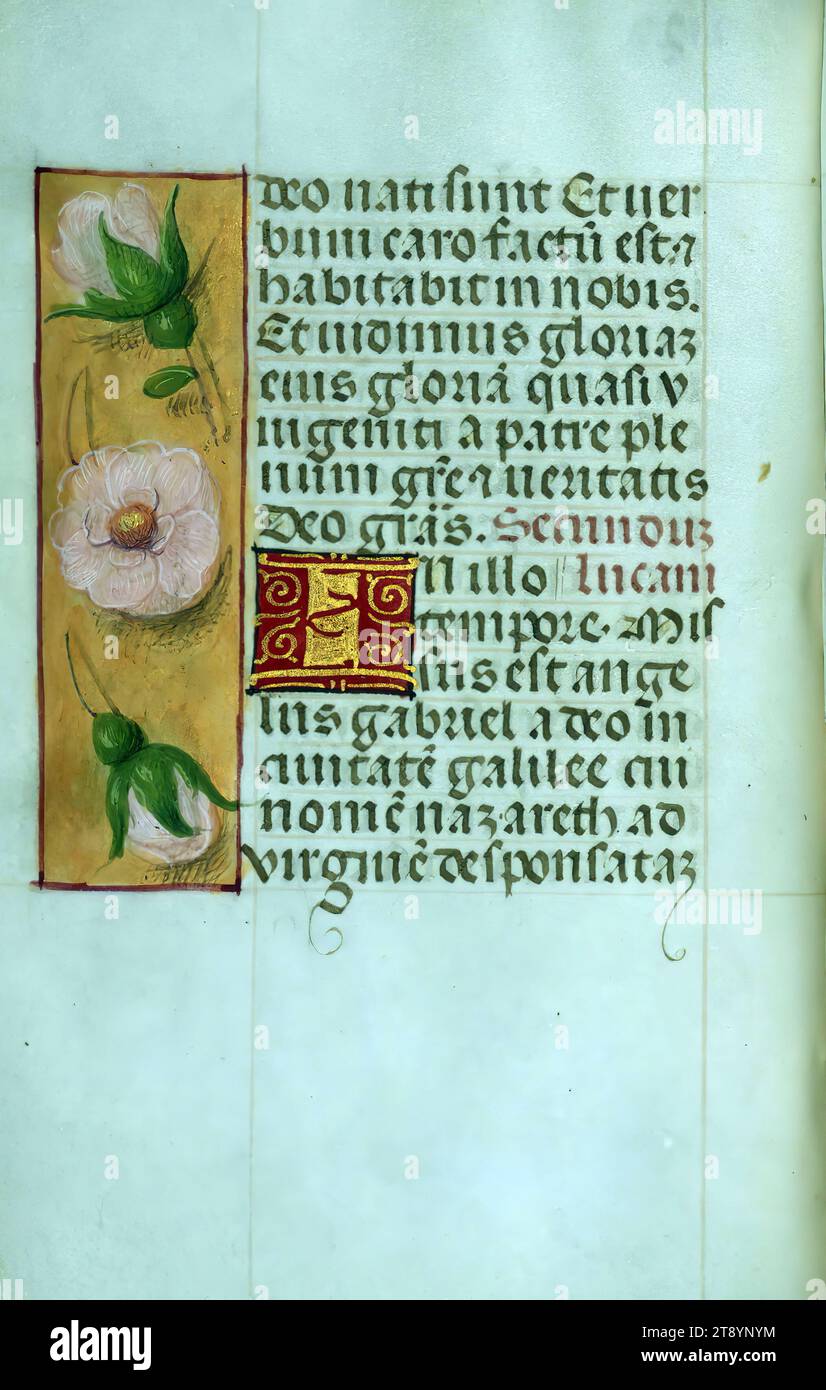 deo nati sunt Et ver
bum caro factū est ⁊
habitabit in nobis.
Et vidimus gloriaꝫ
eius gloriā quasi v
nigeniti a patre ple
num gr̄e ⁊ veritatis
Deo grās. Secunduꝫ
In illo Lucam
tempore. Mis
sus est ange
lus gabriel a deo in
civitatē galilee cui
nomē nazareth ad
virginē desponsataꝫ
alamy
Image ID: 2T8YNYM
www.alamy.com